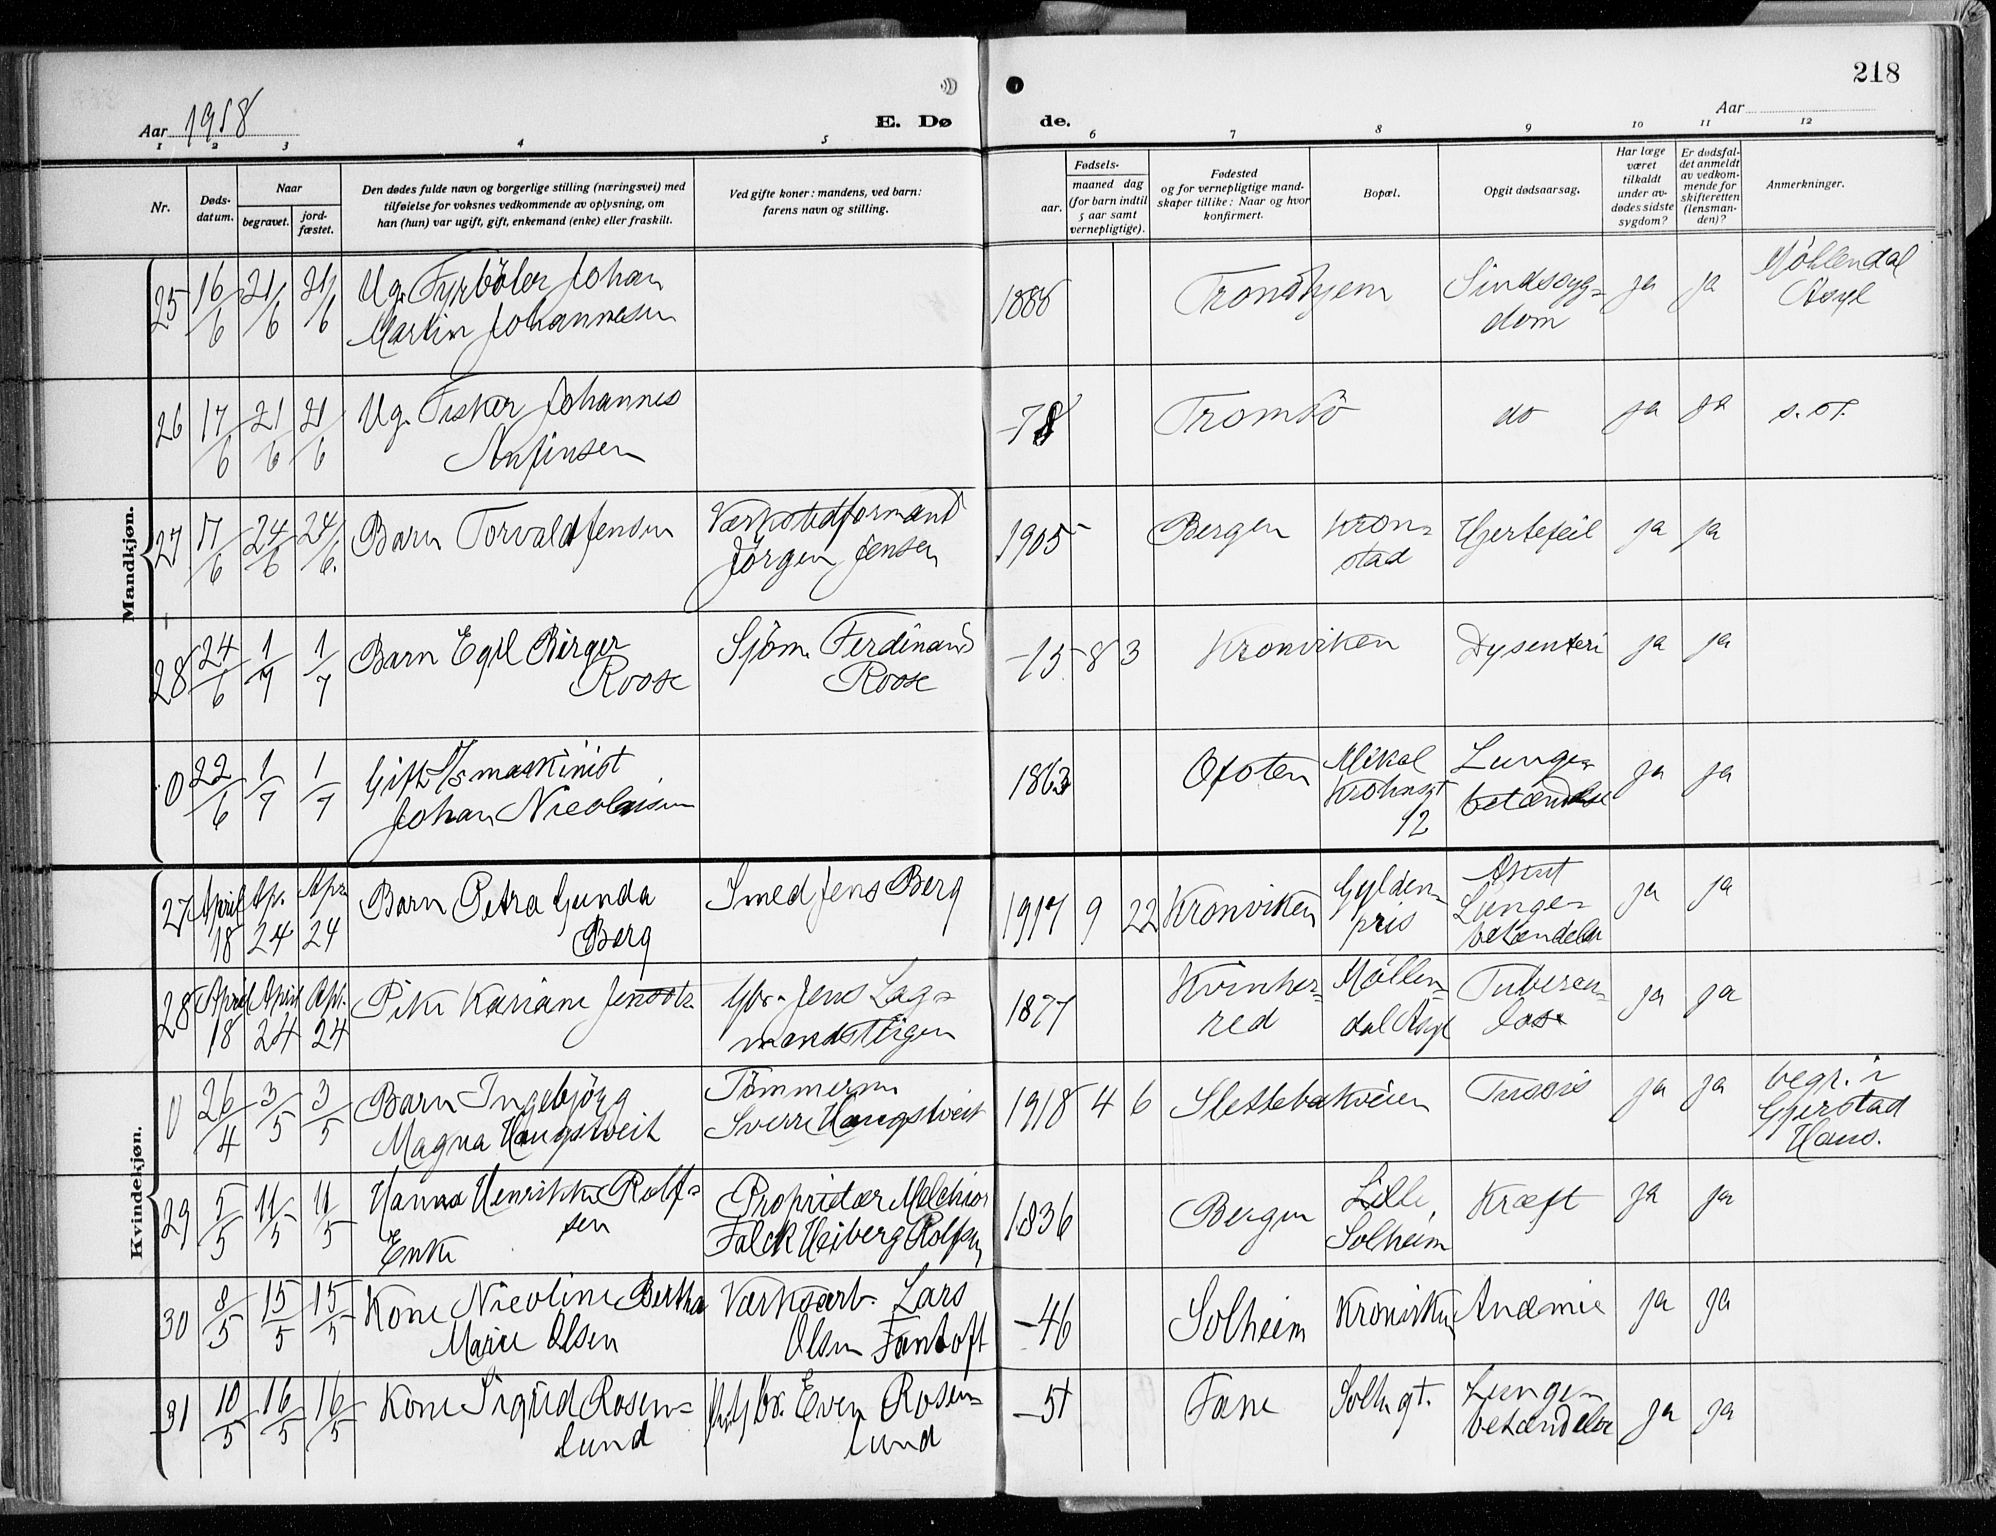 218
Aar 1918
E. Dø de.
Aar
1 2 3 4 5 6 7 8 9 10 11 12
Nr.
Døds-
datum.
Naar
begravet.
jord-
fæstet.
Den dødes fulde navn og borgerlige stilling (næringsvei) med
tilføielse for voksnes vedkommende av oplysning, om
han (hun) var ugift, gift, enkemand (enke) eller fraskilt.
Ved gifte koner: mandens, ved barn:
farens navn og stilling.
Fødsels-
aar.
maaned dag
(for barn indtil
5 aar samt
vernepligtige).
Fødested
og for vernepligtige mand-
skaper tillike: Naar og hvor
konfirmert.
Bopæl.
Opgit dødsaarsag.
Har læge
været
tilkaldt
under av-
dødes sidste
sygdom?
Er dødsfal-
det anmeldt
av vedkom-
mende for
skifteretten
(lensman-
den)?
Anmerkninger.
Mandkjøn.
25 16/6 21/6 21/6 Ug. Fyrböter Johan
Martin Johannesen
1888 Trondhjem Sindssyg-
dom
ja ja Möhlendal
Asyl
26 17/6 21/6 21/6 Ug. Fisker Johannes
Anfinsen
-78 Tromsö do ja ja s.o.
27 17/6 24/6 24/6. Barn Torvald Jensen
Værkstedformand
Jörgen Jensen
1905 Bergen Kron-
stad
Hjertefeil ja ja
28 24/6 1/7 1/7 Barn Egil Birger
Roose
Sjöm. Ferdinand
Roose
-15 8 3 Kronviken Dysenteri ja ja
0 22/6 1/7 1/7 Gift D/s maskinist
Johan Nicolaisen
1863 Ofoten Mikal
Krohnsgt
12
Lunge-
betændelse
ja ja
Kvindekjøn.
27 April
18
Ap.
24
Apr
24
Barn Petra Gunda
Berg
Smed Jens Berg
1917 9 22 Kronviken Gylden-
pris
Akut
Lunge-
betændelse
ja ja
28 April
18
April
24
Apl.
24
Pike Kariane Jensdtr.
Gbr. Jens Lag-
mandstigen
1877 Kvinher-
red
Möllen-
dal Asyl
Tubercu-
lose
ja ja
0 26/4 3/5 3/5 Barn Ingebjörg
Magna Haugstveit
Tömmerm
Sverre Haugstveit
1918 4 6 Slettebakveien Tussis ja ja begr. i
Gjerstad
Haus.
29 5/5 11/5 11/5 Hanna Henrikke Rolf-
sen
Enke
Proprietær Melchior
Falck Heiberg Rolfsen
1836 Bergen Lille
Solheim
Kræft ja ja
30 8/5 15/5 15/5 Kone Nicoline Bertha
Marie Olsen
Værksarb. Lars
Olsen Fantoft
-46 Solheim Kronviken Anæmie ja ja
31 10/5 16/5 16/5 Kone Sigrid Rosen-
lund
Gbr. Even Rosen-
lund
-51 Fane Solh.gt. Lunge-
betændelse
ja ja